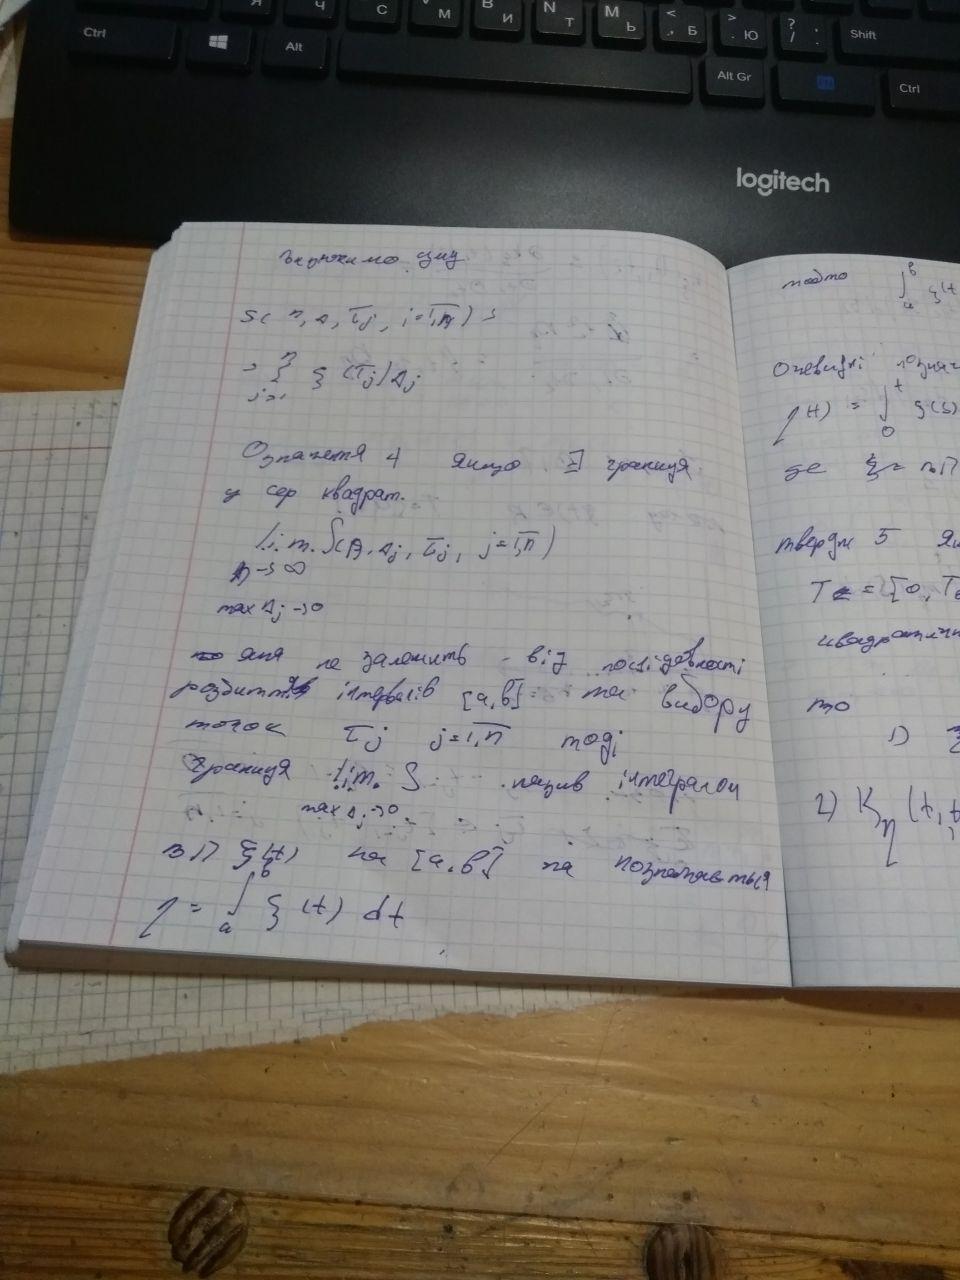 Ctrl
Alt
Alt Gr
Ctrl
Shift
Я
Ч
С
М
И
Т
Ь
Б
Ю
logitech
S( n, Δ, τj, j=1,n ) =
= Σ ξ (τj) Δj
j=1
Означення 4 Якщо ∃ границя
у сер квадрат.
l.i.m. S(n, Δj, τj, j=1,n)
n→∞
max Δj →0
яка не залежить від послідовності
розбиття інтервалів [a,b] та вибору
точок τj j=1,n тоді
границя l.i.m. S назив інтегралом
max Δj →0
ВП ξ(t) на [a,b] та позначається
η = ∫ₐᵇ ξ (t) dt
тобто ∫ₐᵇ ξ(t
Очевидні
η(t) = ∫₀ᵗ ξ(s)
де ξ
тверд 5 Як
T = [0, T
квадратичн
то
1) ξ
2) Kη (t₁,t